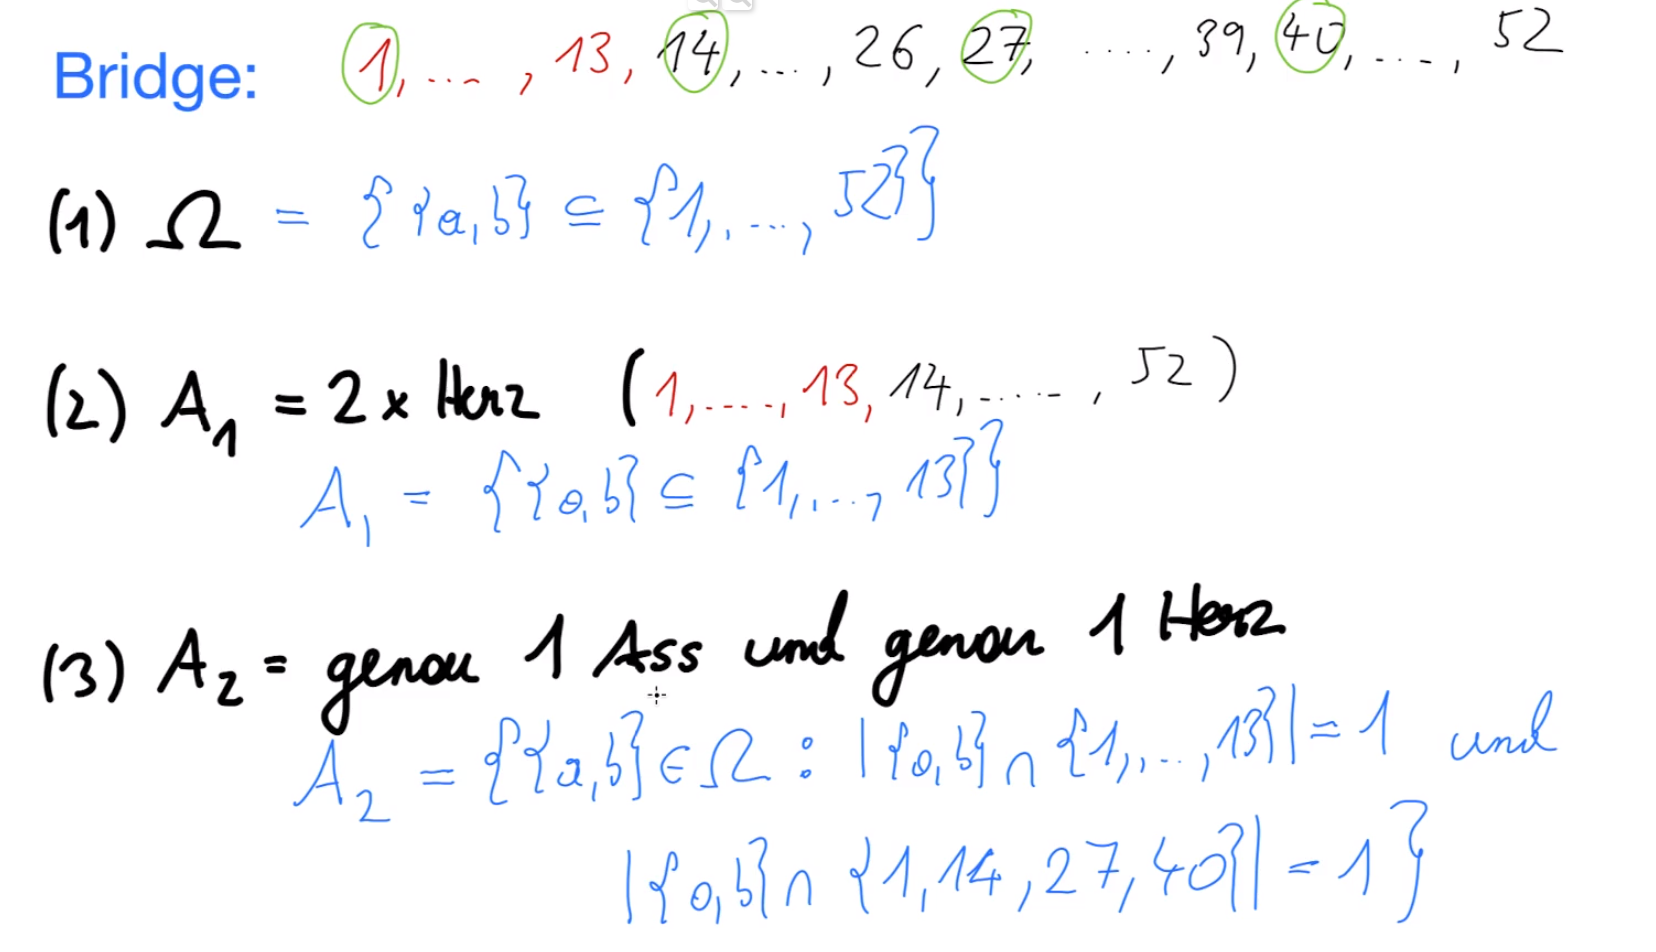 Bridge: 1, ..., 13, 14, ..., 26, 27, ...., 39, 40, ...., 52
(1) Ω = {{a,b} ⊆ {1, ..., 52}}
(2) A₁ = 2 x Herz (1, ...., 13, 14, ....., 52)
A₁ = {{a,b} ⊆ {1, ..., 13}}
(3) A₂ = genau 1 Ass und genau 1 Herz
A₂ = {{a,b} ∈ Ω : |{a,b} ∩ {1, ..., 13}| = 1 und
|{a,b} ∩ {1, 14, 27, 40}| = 1}